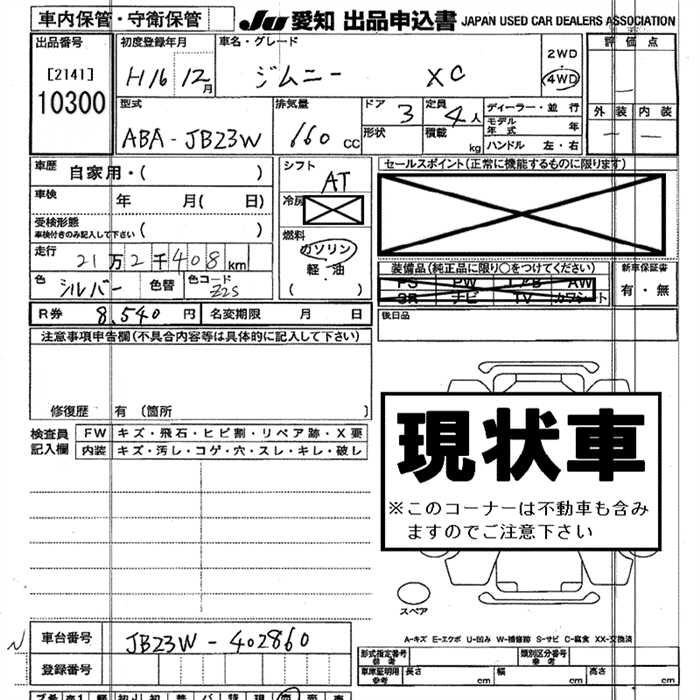 車内保管・守衛保管
JU 愛知 出品申込書 JAPAN USED CAR DEALERS ASSOCIATION
出品番号
[2141]
10300
初度登録年月
H16 12月
車名・グレード
ジムニー XC
2WD
・
4WD
評価点
外装 内装
型式
ABA-JB23W
排気量
660 CC
ドア 3
形状
定員 4人
積載 kg
ディーラー・並行
モデル年式 年
ハンドル 左・右
車歴 自家用・( )
車検 年 月( 日)
受検形態
車検付きのみ記入して下さい ( )
走行 21万2千408km
色 シルバー 色替 色コード Z2S
シフト
AT
冷房
燃料
ガソリン
軽・油
( )
セールスポイント(正常に機能するものに限ります)
装備品(純正品に限り○をつけてください)
PS PW エアB AW
SR ナビ TV カワシート
新車保証書
有・無
R券 8,540円 名変期限 月 日
後日品
注意事項申告欄(不具合内容等は具体的に記入して下さい)
修復歴 有 〔箇所 〕
検査員記入欄
FW キズ・飛石・ヒビ割・リペア跡・X要
内装 キズ・汚し・コゲ・穴・スレ・キレ・破レ
現状車
※このコーナーは不動車も含み
ますのでご注意下さい
スペア
A-キズ E-エクボ U-凹み W-補修跡 S-サビ C-腐食 XX-交換済
車台番号 JB23W-402860
登録番号
形式指定番号 参考
類別区分番号 参考
車庫証明用 参考 長さ cm 幅 cm 高さ cm